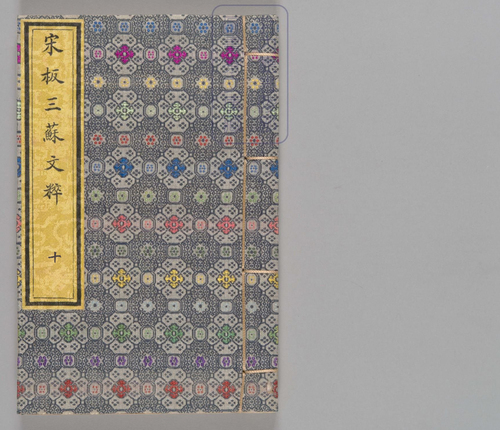 宋板三蘇文粹
十